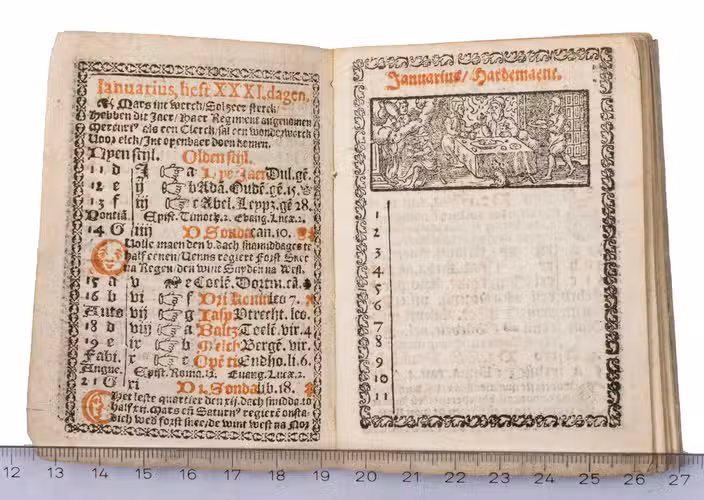 Ianuarius, heft XXXI. dagen.
Mars int werck / Sol zeer sterck /
Hebben dit Jaer / haer Regiment aengenomen
Mercuri⁹ als een Clerck / sal een wonderwerck
Voor elck / Int openbaer doen komen.
Nyen stijl. Olden stijl.
11 d a Dul. gē.
12 e ij b Adā. Oudē. gē. 15.
13 f iij c Abel. gē 28.
Pontiā. Epist. Timoth. 2. Evang. Lucæ. 2.
14 G iiij D Sonda Can. 10.
Volle maen den v. dach snamiddages te
half eenen / Venus regiert Forst Snee
na Regen / den wint Suyden na West.
15 a v e Coelē. Dortm. cā.
16 b vi f Dri Konin leo 7.
Ants vij g Casp Utrecht. leo.
18 d viij a Baltz Toelē. vir. 4
19 e ix b Melch Bergē. vir.
Fabi. x c Opē ti Eindho. li. 6.
Epist. Roma. 12. Evang. Lucæ. 2.
21 G xi D 1. Sonda lib. 18.
Het leste quartier den xij. dach smidda. to
half xij. Mars eñ Saturn⁹ regierē onsta
dich weer forst snee / de wint west na No
Januarius / Hardemaent.
1
2
3
4
5
6
7
8
9
10
11
12 13 14 15 16 17 18 19 20 21 22 23 24 25 26 27